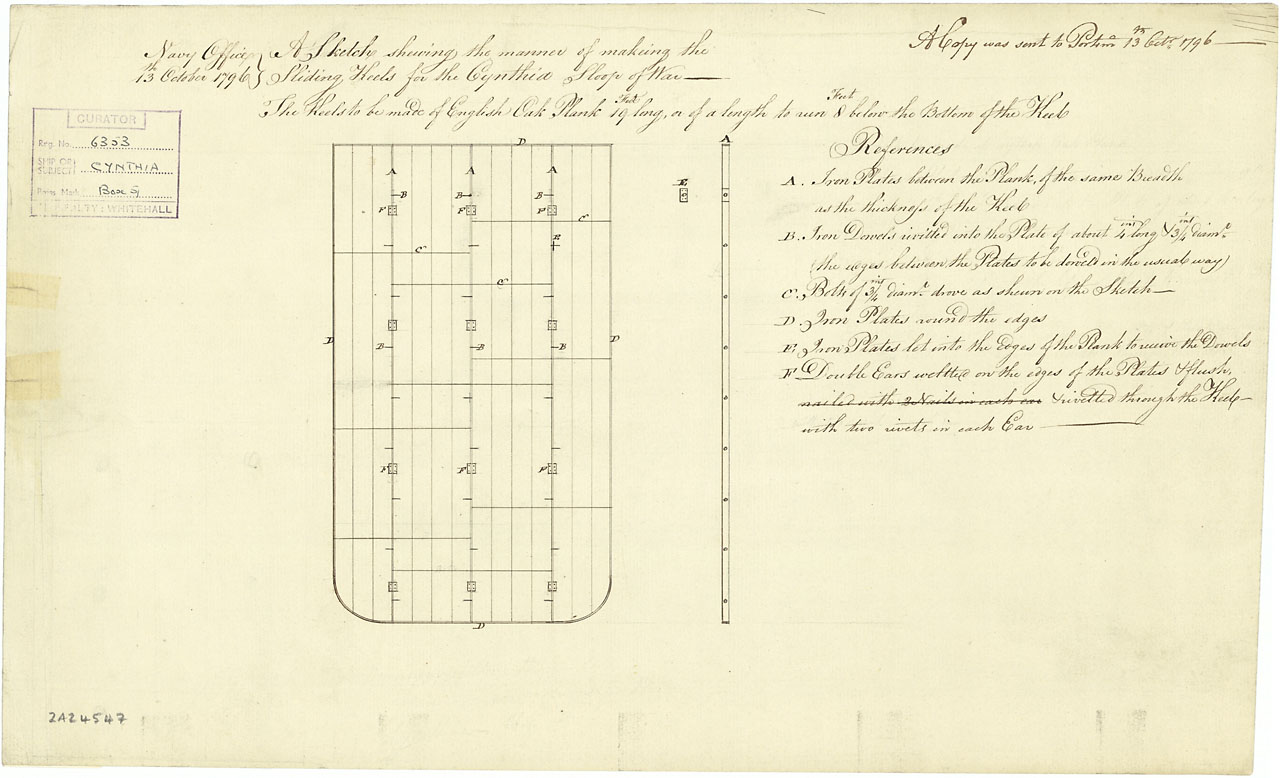 A Copy was sent to Portsmº 13th Octr 1796
Navy Office
13th October 1796
A Sketch shewing the manner of makeing the
Sliding Keels for the Cynthia Sloop of War
The Keels to be made of English Oak Plank 19 Feet long, or of a length to run 8 Feet below the Bottom of the Keel
CURATOR
Reg. No. 6353
SHIP OR SUBJECT CYNTHIA
Box 9
WHITEHALL
References
A. Iron Plates between the Plank, of the same Breadth
as the thickness of the Keel
B. Iron Dowels rivitted into the Plate of about 4 ins long & 3/4 ins diamr
(the edges between the Plates to be dowel'd in the usual way)
C. Bolts of 3/4 ins diamr drove as shewn on the Sketch
D. Iron Plates round the edges
E. Iron Plates let into the Edges of the Plank to receive the Dowels
F. Double Ears welted on the edges of the Plates & flush,
nailed with 2 Nails in each ear & rivetted through the Keel
with two rivets in each Ear
D
A A A A
B B
E
F F F
C
E
C
C
D D
B B B
F F F
D
2A24547